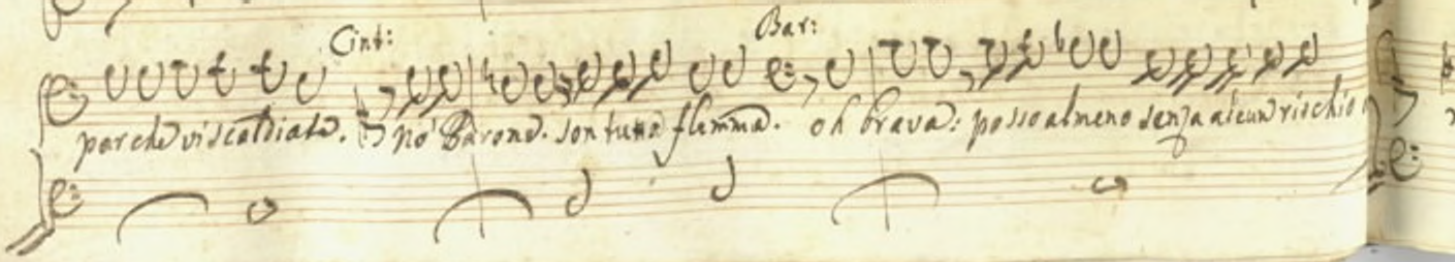 Cint: Bar:
par che vi scaldiate. nò Barone. son tutta flemma. oh brava: posso almeno senza alcun rischio